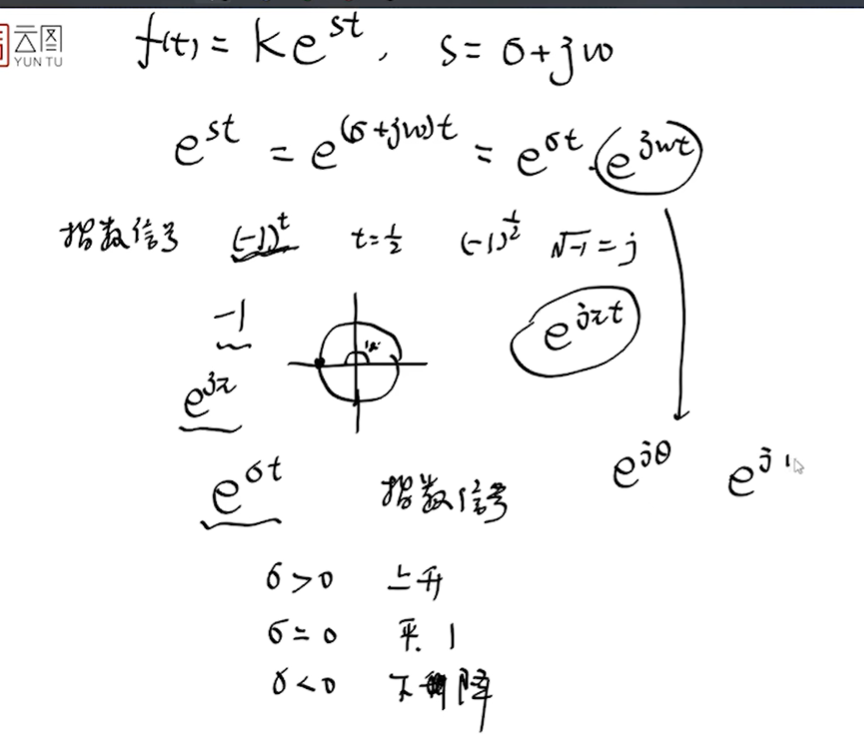 云图
YUN TU
f(t) = Ke^{st}, s = σ+jω
e^{st} = e^{(σ+jω)t} = e^{σt}·e^{jωt}
指数信号 (-1)^t t=1/2 (-1)^{1/2} √-1 = j
-1
e^{jπt}
e^{jπ}
e^{σt} 指数信号 e^{jθ} e^{j1
σ>0 上升
σ=0 平. 1
σ<0 下降